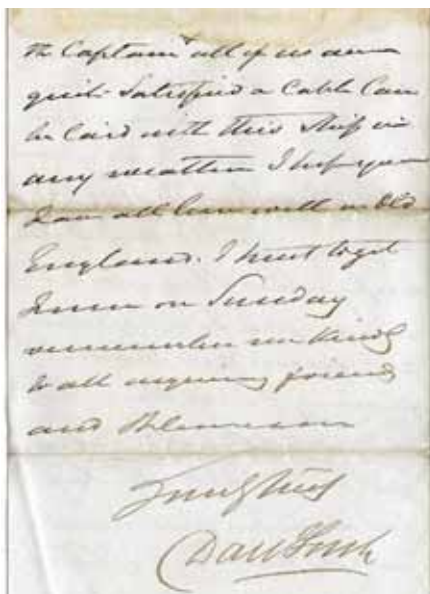 the Captain & all of us are
quite Satisfied a Cable Can
be laid with this Ship in
any weather I hope you
have all been well in Old
England. I trust to get
on Sunday
remember me kindly
to all friend
and
Yours truly